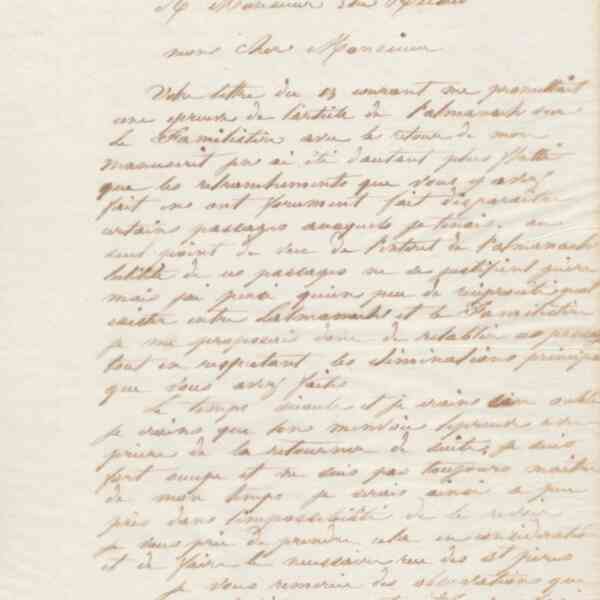 Monsieur
mon cher Monsieur
Votre lettre du 13 courant me promettait
une epreuve de l'article de l'almanach sur
le Familistère avec le retour de mon
manuscrit j'en ai été d'autant plus flatté
que les retranchements que vous y avez
fait en ont forcément fait disparaitre
certains passages auxquels je tenais. au
seul point de vue de l'interet de l'almanach
l'utilité de ces passages ne se justifient guère
mais j'ai pensé qu'un peu de réciprocité peut
exister entre l'almanach et le Familistère
je me proposais donc de retablir ces passages
tout en respectant les éliminations principales
que vous avez faites
Le temps s'écoule et je crains un oubli
je crains que l'on m'envoie l'épreuve avec
prière de la retourner de suite, je suis
fort occupé et ne suis pas toujours maitre
de mon temps je serais ainsi a peu
près dans l'impossibilité de la revoir
je vous prie de prendre cela en consideration
et de faire le necessaire rue des Sts pères
je vous remercie des observations que